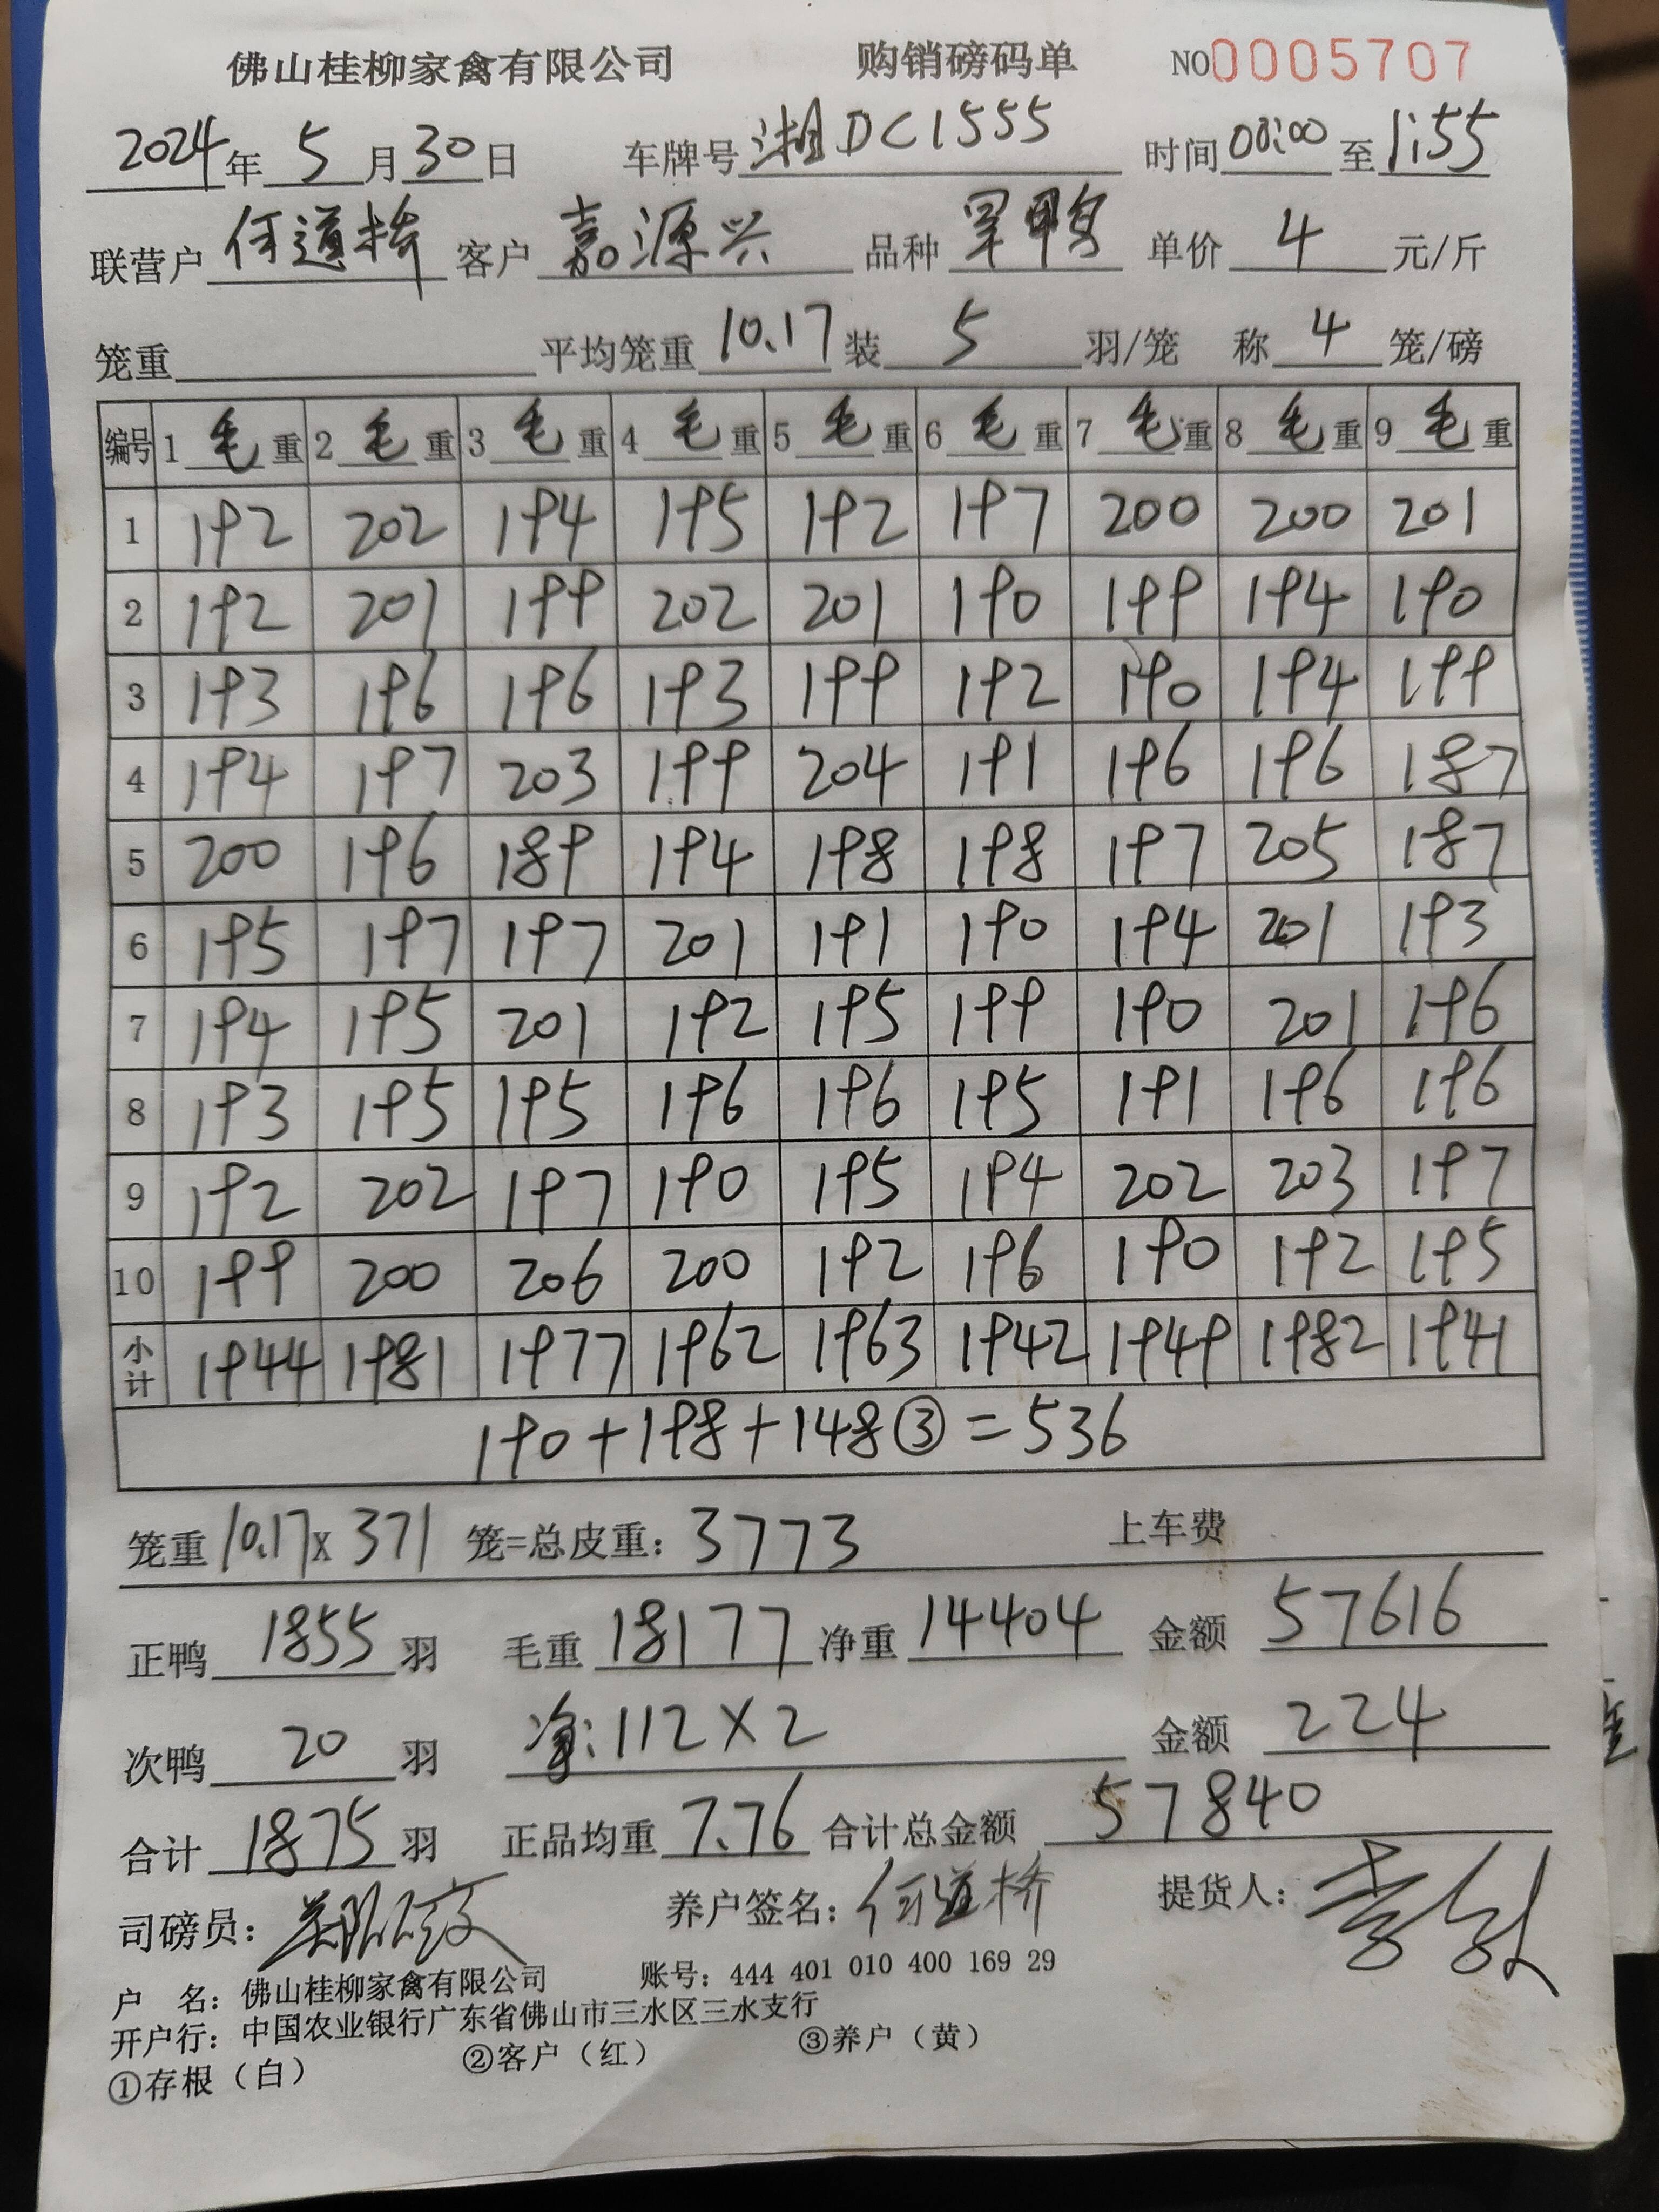 佛山桂柳家禽有限公司 购销磅码单 NO0005707
2024年5月30日 车牌号湘DC1555 时间00:00至1:55
联营户何道桥 客户嘉源兴 品种罗鸭 单价4元/斤
笼重 平均笼重10.17装5羽/笼 称4笼/磅
编号 1毛重 2毛重 3毛重 4毛重 5毛重 6毛重 7毛重 8毛重 9毛重
1 192 202 194 195 192 197 200 200 201
2 192 201 199 202 201 190 199 194 190
3 193 196 196 193 199 192 190 194 199
4 194 197 203 199 204 191 196 196 187
5 200 196 189 194 198 198 197 205 187
6 195 197 197 201 191 190 194 201 193
7 194 195 201 192 195 199 190 201 196
8 193 195 195 196 196 195 191 196 196
9 192 202 197 190 195 194 202 203 197
10 199 200 206 200 192 196 190 192 195
小计 1944 1981 1977 1962 1963 1942 1949 1982 1941
190+198+148③=536
笼重10.17x371 笼=总皮重：3773 上车费
正鸭1855羽 毛重18177净重14404 金额57616
次鸭20羽 净:112X2 金额224
合计1875羽 正品均重7.76 合计总金额57840
司磅员： 养户签名：何道桥 提货人：
户 名：佛山桂柳家禽有限公司 账号：444 401 010 400 169 29
开户行：中国农业银行广东省佛山市三水区三水支行
①存根（白） ②客户（红） ③养户（黄）